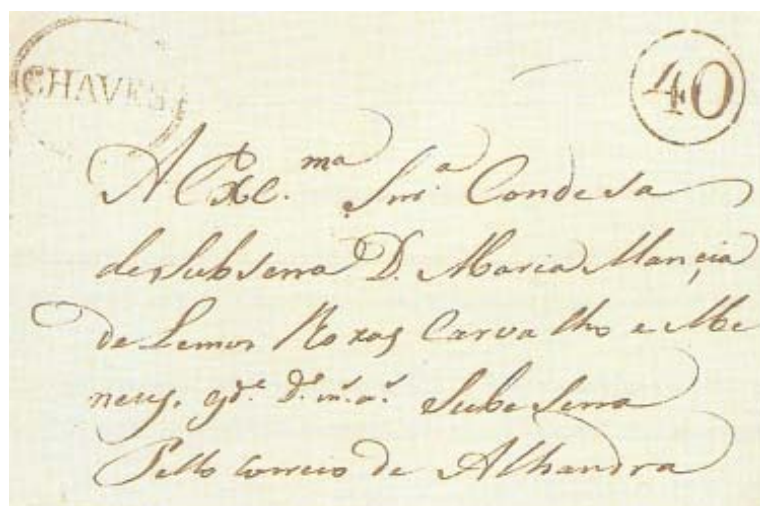 CHAVES
40
A Ex.ma Snr.a Condesa
de Subserra D. Maria Mancia
de Lemos Roxas Carvalho e Me
nezes. gd.e D.s m.s a.s Subeserra
Pello Correio de Alhandra